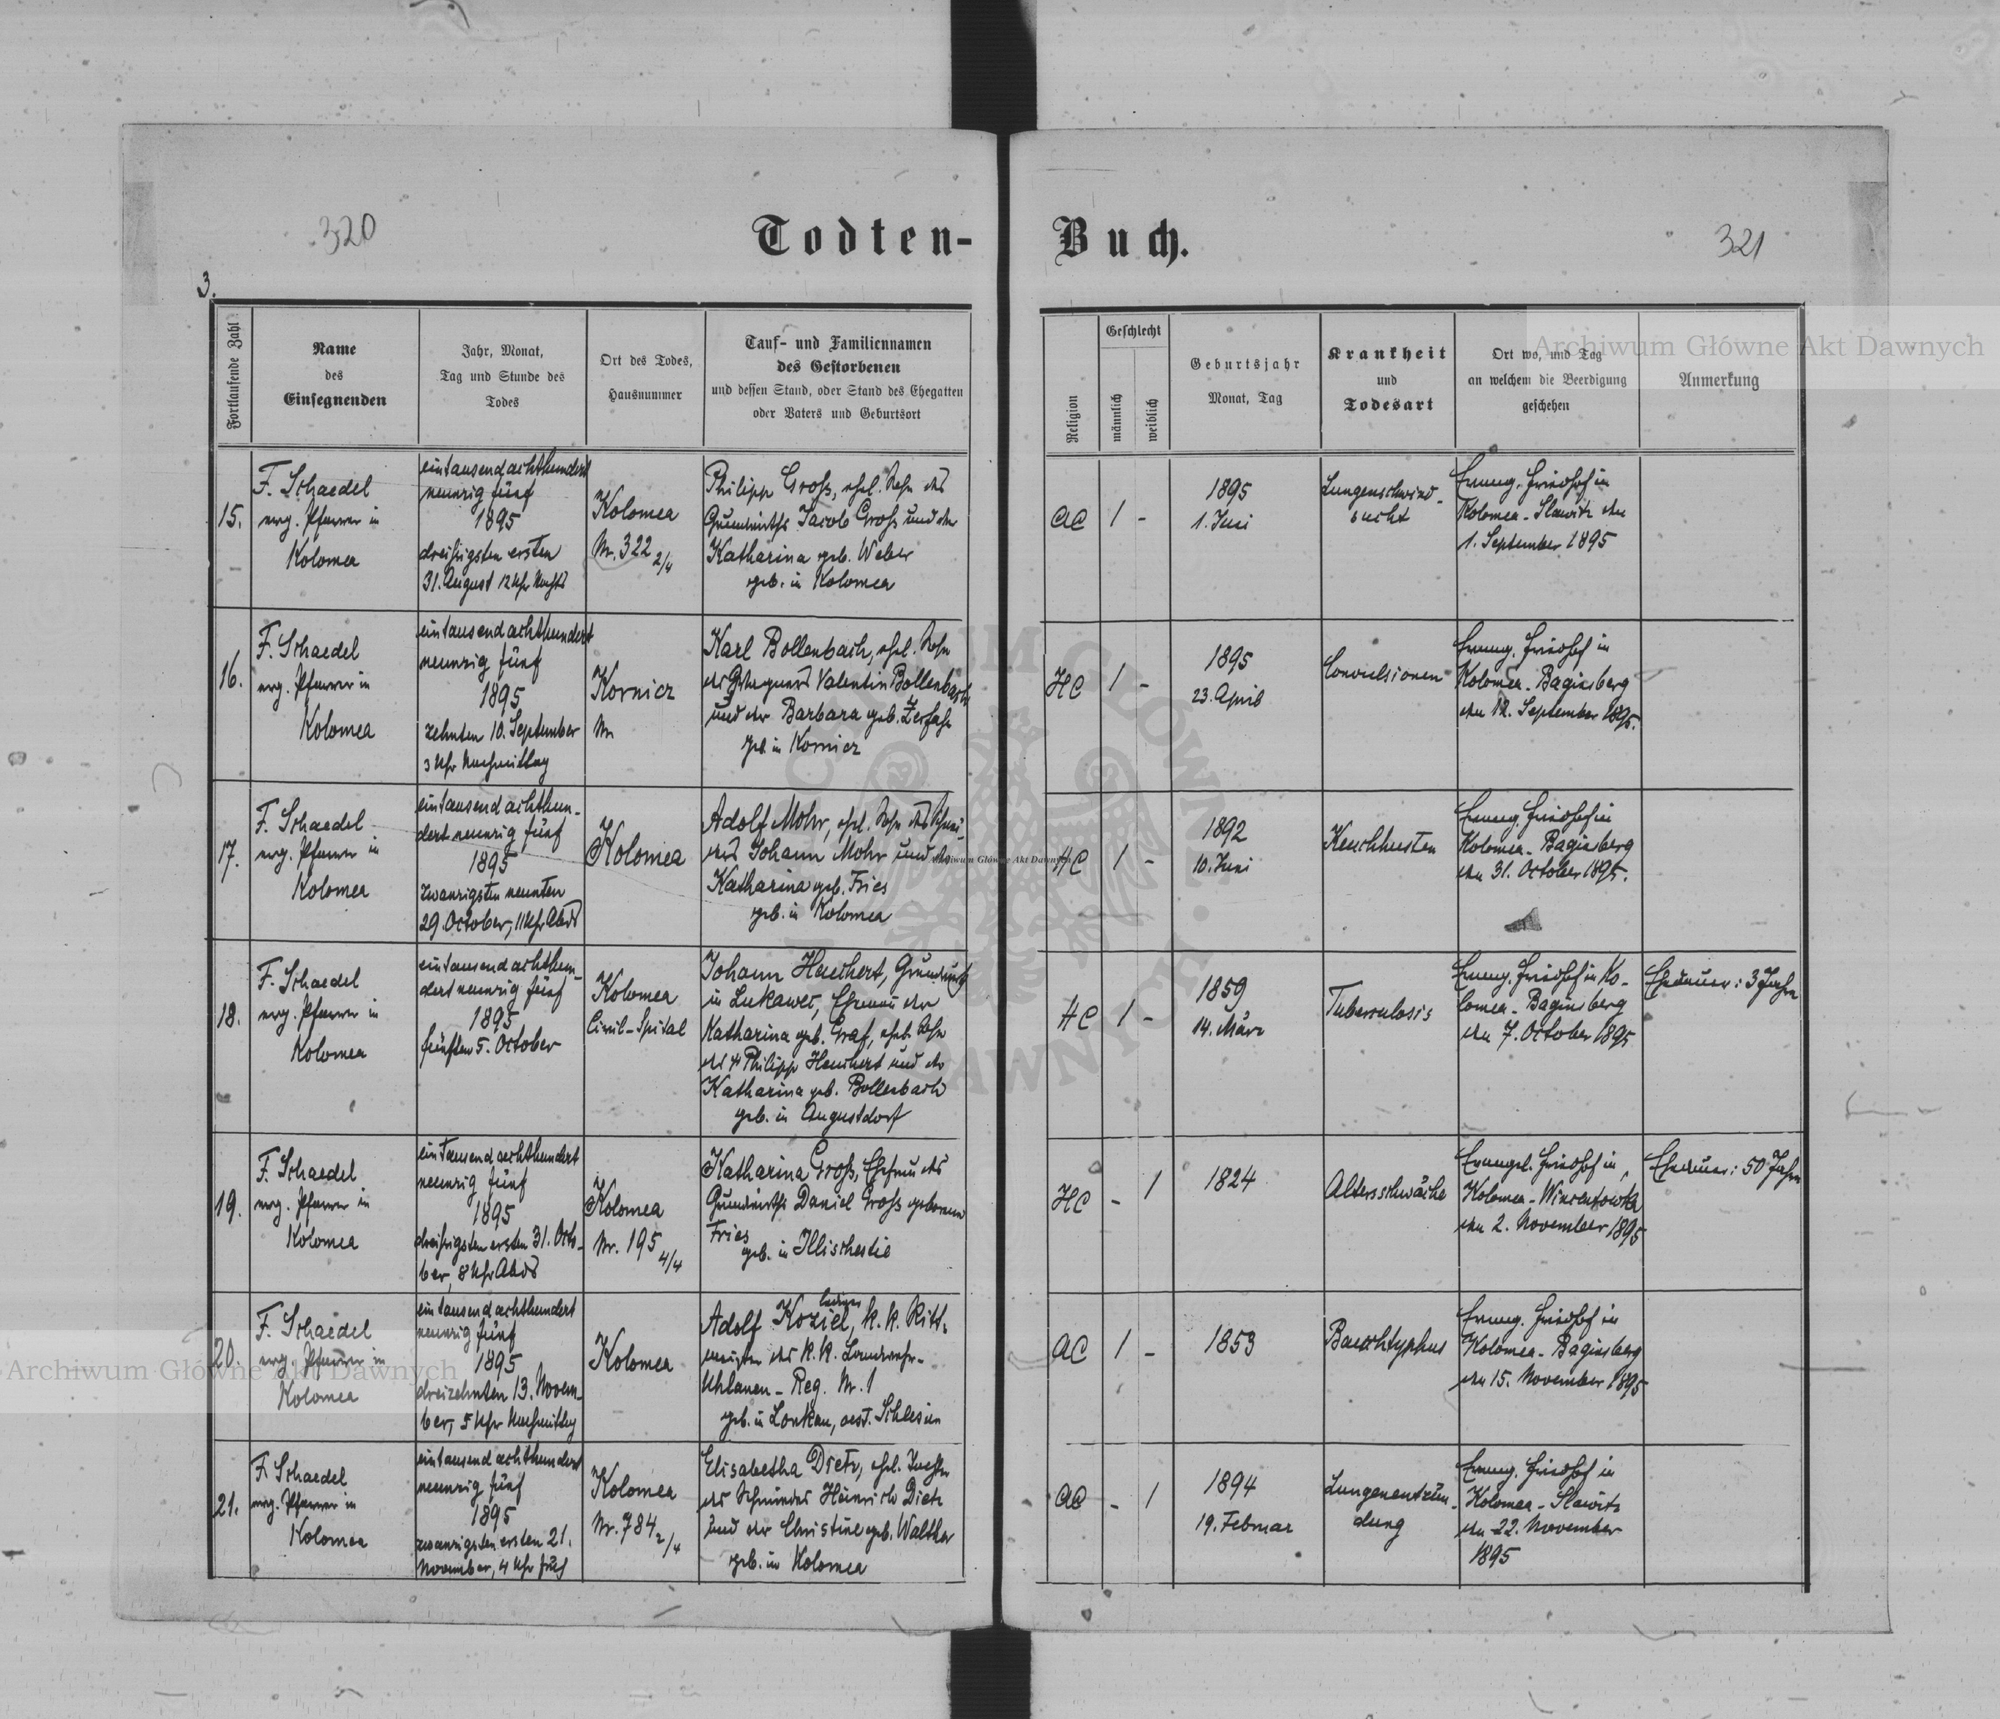 320
Todten-
Buch.
321
3.
Fortlaufende Zahl
Name
des
Einsegnenden
Jahr, Monat,
Tag und Stunde des
Todes
Ort des Todes,
Hausnummer
Tauf- und Familiennamen
des Gestorbenen
und dessen Stand, oder Stand des Ehegatten
oder Vaters und Geburtsort
Religion
Geschlecht
männlich
weiblich
Geburtsjahr
Monat, Tag
Krankheit
und
Todesart
Ort wo, und Tag
an welchem die Beerdigung
geschehen
Anmerkung
Archiwum Główne Akt Dawnych
15.
F. Schaedel
evg. Pfarrer in
Kolomea
eintausendachthundert
neunzig fünf
1895
dreißigsten ersten
31. August 12 Uhr Nachts
Kolomea
Nr. 322 2/4
Philipp Groß, ehel. Sohn des
Grundwirths Jacob Groß und der
Katharina geb. Weber
geb. in Kolomea
AC
1
-
1895
1. Juni
Lungenschwind-
sucht
Evang. Friedhof in
Kolomea-Slawitz den
1. September 1895
16.
F. Schaedel
evg. Pfarrer in
Kolomea
eintausendachthundert
neunzig fünf
1895
zehnten 10. September
3 Uhr Nachmittag
Kornicz
Nr.
Karl Bollenbach, ehel. Sohn
des Valentin Bollenbach
und der Barbara geb. Zerfaß
geb. in Kornicz
HC
1
-
1895
23. April
Convulsionen
Evang. Friedhof in
Kolomea-Baginsberg
den 12. September 1895.
17.
F. Schaedel
evg. Pfarrer in
Kolomea
eintausendachthun-
dert neunzig fünf
1895
zwanzigsten neunten
29. October, 11 Uhr Abds
Kolomea
Adolf Mohr, ehel. Sohn des Schnei-
ders Johann Mohr und der
Katharina geb. Fries
geb. in Kolomea
Archiwum Główne Akt Dawnych
HC
1
-
1892
10. Juni
Keuchhusten
Evang. Friedhof in
Kolomea-Baginsberg
den 31. October 1895.
18.
F. Schaedel
evg. Pfarrer in
Kolomea
eintausendachthun-
dert neunzig fünf
1895
fünften 5. October
Kolomea
Civil-Spital
Johann Heuchert, Grundwirth
in Lukawec, Ehemann der
Katharina geb. Graf, ehel. Sohn
des † Philipp Heuchert und der
Katharina geb. Bollenbach
geb. in Augustdorf
HC
1
-
1859
14. März
Tuberculosis
Evang. Friedhof in Ko-
lomea-Baginsberg
den 7. October 1895
Ehedauer: 3 Jahre
19.
F. Schaedel
evg. Pfarrer in
Kolomea
eintausendachthundert
neunzig fünf
1895
dreißigsten ersten 31. Octo-
ber, 8 Uhr Abds
Kolomea
Nr. 195 4/4
Katharina Groß, Ehefrau des
Grundwirths Daniel Groß geborene
Fries
geb. in Illischestie
HC
-
1
1824
Altersschwäche
Evangel. Friedhof in
Kolomea-Wincentowka
den 2. November 1895
Ehedauer: 50 Jahre
20.
F. Schaedel
evg. Pfarrer in
Kolomea
eintausendachthundert
neunzig fünf
1895
dreizehnten 13. Novem-
ber, 5 Uhr Nachmittag
Kolomea
ledig
Adolf Koziel, k. k. Ritt-
meister des k. k. Landwehr-
Uhlanen-Reg. Nr. 1
geb. in Lonkau, oest. Schlesien
AC
1
-
1853
Bauchtyphus
Evang. Friedhof in
Kolomea-Baginsberg
den 15. November 1895
Archiwum Główne Akt Dawnych
21.
F. Schaedel
evg. Pfarrer in
Kolomea
eintausendachthundert
neunzig fünf
1895
zwanzigsten ersten 21.
November, 4 Uhr früh
Kolomea
Nr. 784 2/4
Elisabetha Dietz, ehel. Tochter
des Schmiedes Heinrich Dietz
und der Christine geb. Walther
geb. in Kolomea
AC
-
1
1894
19. Februar
Lungenentzün-
dung
Evang. Friedhof in
Kolomea-Slawitz
den 22. November
1895